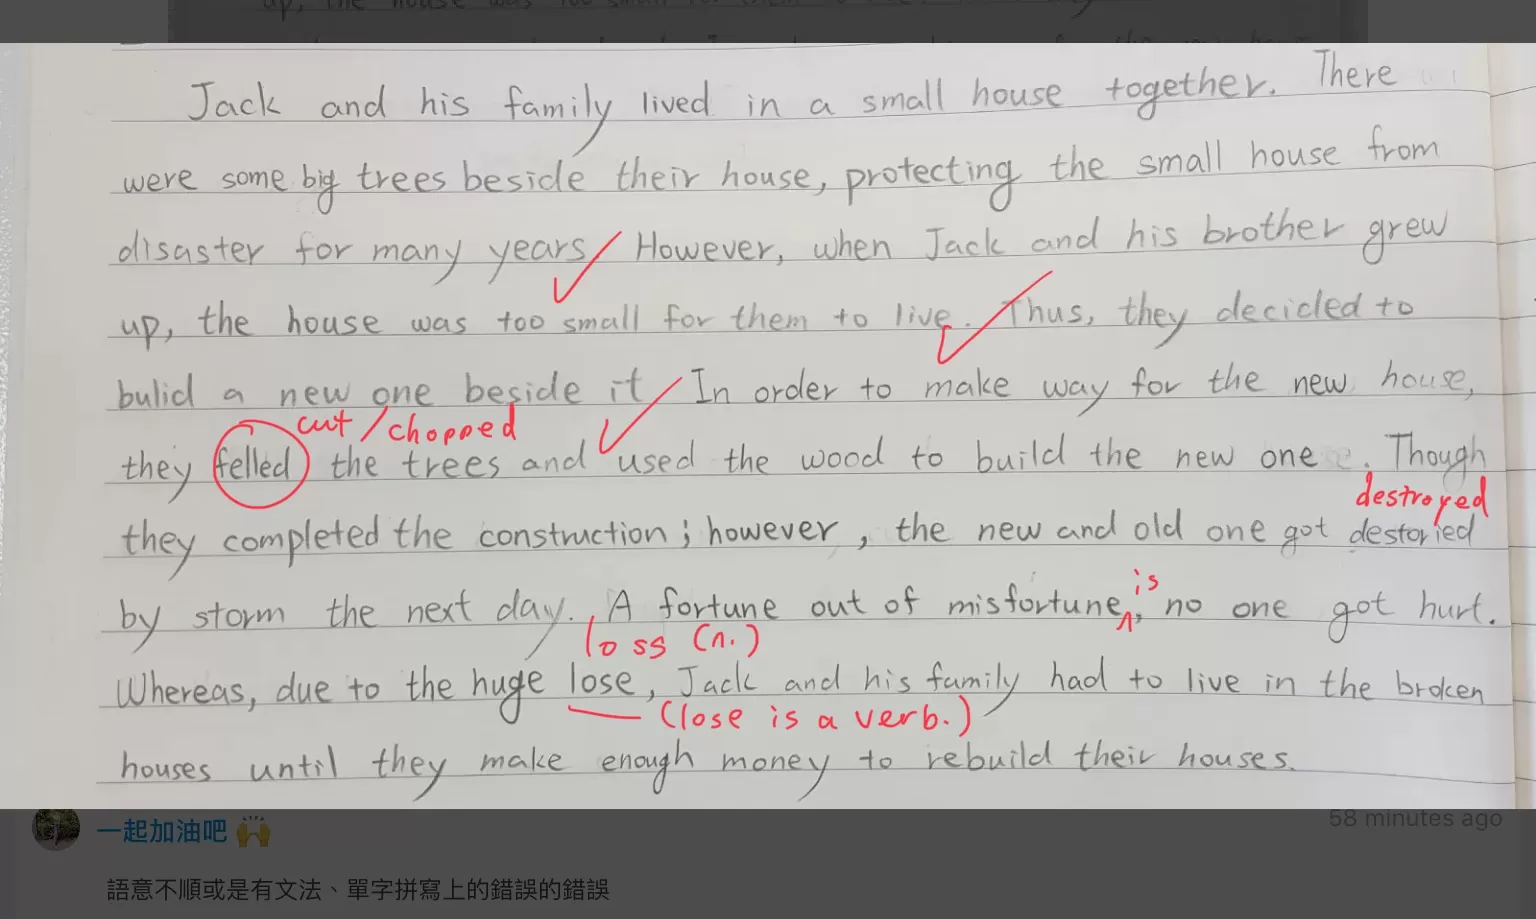 Jack and his family lived in a small house together. There
were some big trees beside their house, protecting the small house from
disaster for many years However, when Jack and his brother grew
up, the house was too small for them to live. Thus, they decided to
bulid a new one beside it In order to make way for the new house,
cut / chopped
they felled the trees and used the wood to build the new one. Though
destroyed
they completed the construction ; however, the new and old one got destoried
is
by storm the next day. A fortune out of misfortune, no one got hurt.
loss (n.)
Whereas, due to the huge lose, Jack and his family had to live in the broken
(lose is a verb.)
houses until they make enough money to rebuild their houses.
一起加油吧 🙌
58 minutes ago
語意不順或是有文法、單字拼寫上的錯誤的錯誤